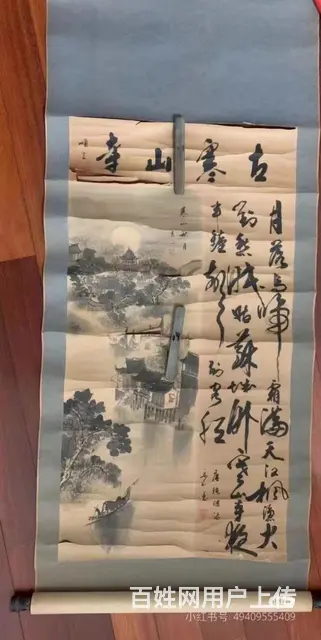 古寒山寺
月落烏啼霜滿天江楓漁火
對愁眠姑蘇城外寒山寺夜
半鐘聲到客船
百姓网用户上传
小红书号：49409555409